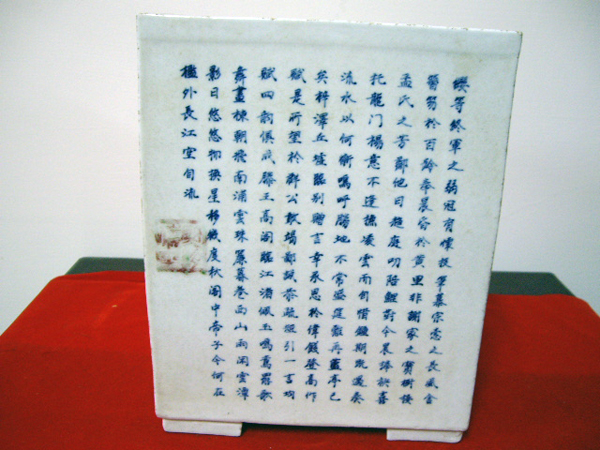 纓等終軍之弱冠有懷投筆慕宗慤之長風舍
簪笏於百齡奉晨昏於萬里非謝家之寶樹接
孟氏之芳鄰他日趨庭叨陪鯉對今晨捧袂喜
托龍门楊意不逢撫凌雲而自惜鍾期既遇奏
流水以何慚嗚呼勝地不常盛筵難再蘭亭已
矣梓澤丘墟臨別贈言幸承恩於偉餞登高作
賦是所望於群公敢竭鄙誠恭疏短引一言均
賦四韻俱成滕王高閣臨江渚佩玉鳴鸞罷歌
舞畫棟朝飛南浦雲珠簾暮卷西山雨閑雲潭
影日悠悠物換星移幾度秋閣中帝子今何在
檻外長江空自流